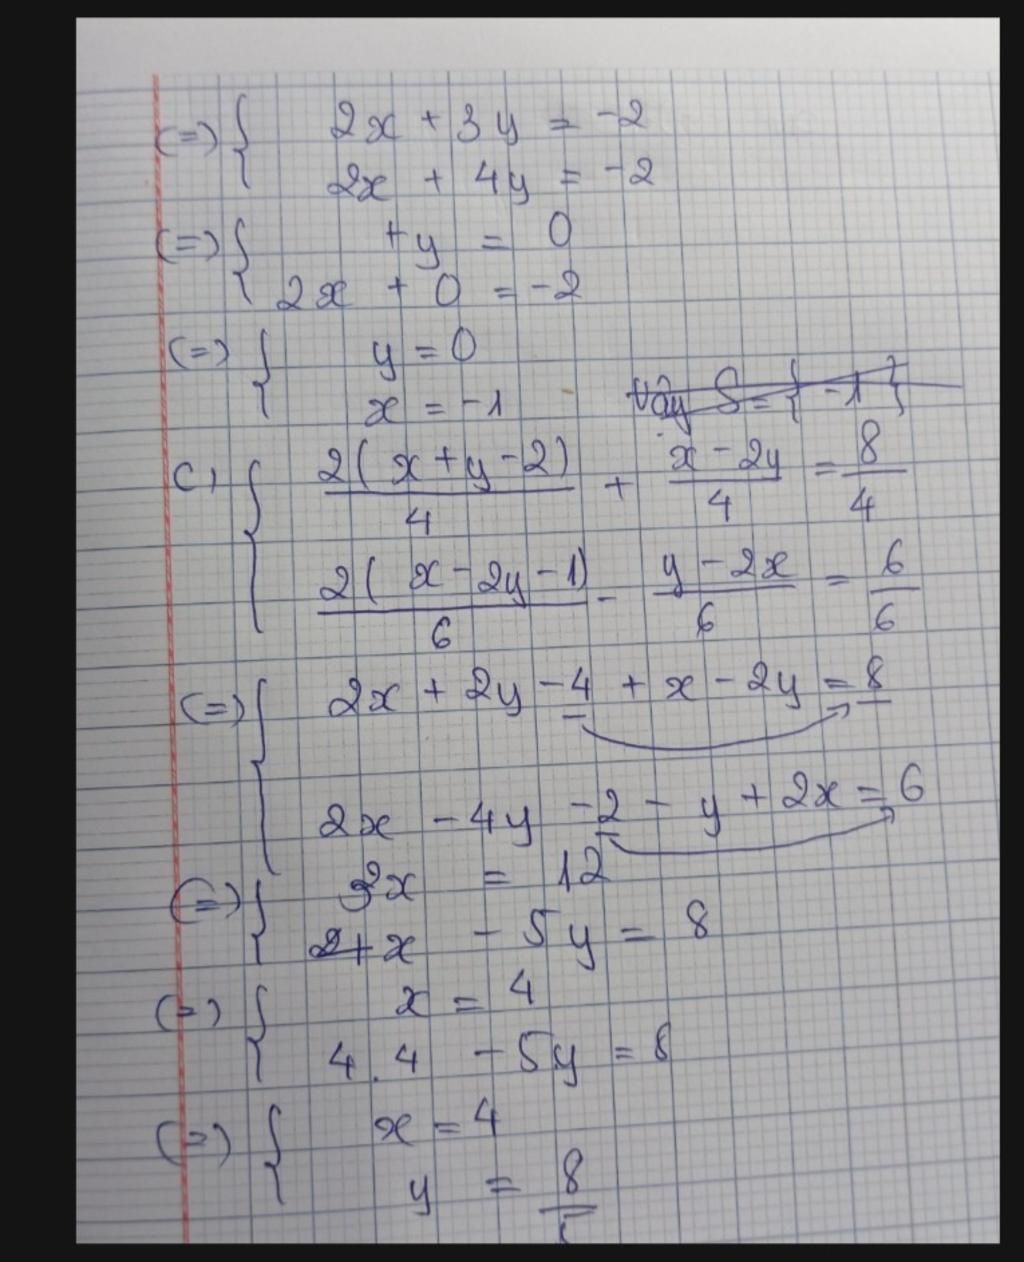 (=) { 2x + 3y = -2
2x + 4y = -2
(=) { +y = 0
2x + 0 = -2
(=) { y = 0
x = -1 Vậy S = { -1 }
c) { 2( x + y - 2)/4 + x - 2y/4 = 8/4
2( x - 2y - 1)/6 - y - 2x/6 = 6/6
(=) { 2x + 2y - 4 + x - 2y = 8
2x - 4y - 2 - y + 2x = 6
(=) { 3x = 12
4x - 5y = 8
(=) { x = 4
4 . 4 - 5y = 8
(=) { x = 4
y = 8/5